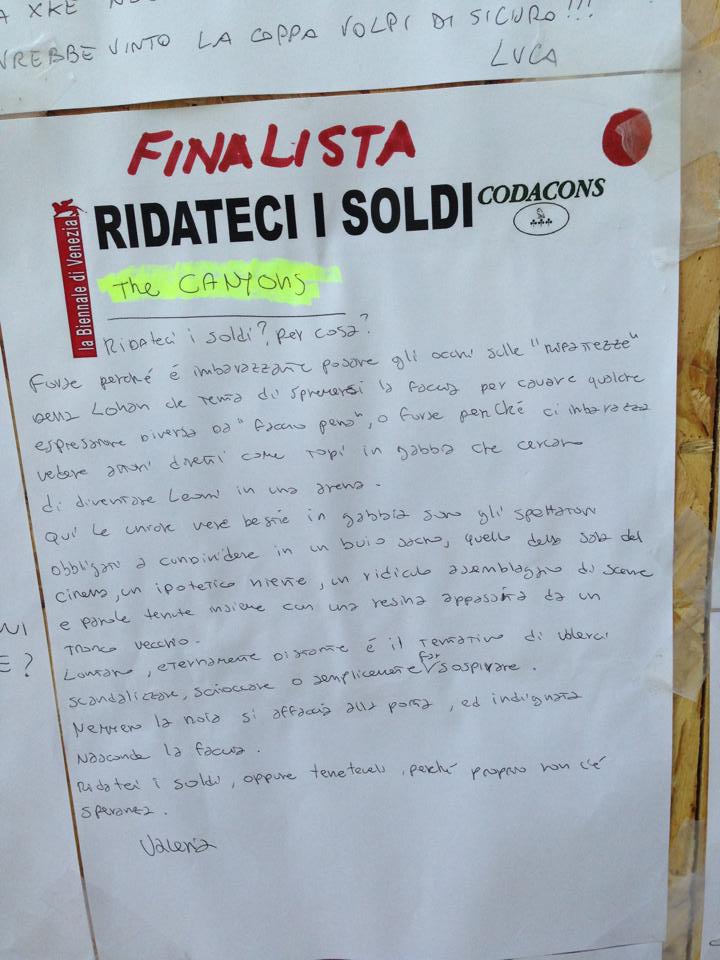 A XKE NE
VREBBE VINTO LA COPPA VOLPI DI SICURO!!!
LUCA
FINALISTA
la Biennale di Venezia
RIDATECI I SOLDI
CODACONS
The CANYONS
Ridateci i soldi? per cosa?
Forse perché é imbarazzante posare gli occhi sulle "rifatezze"
della Lohan che tenta di spremersi la faccia per cavare qualche
espressione diversa da "faccio pena", o forse perché ci imbarazza
vedere attori diretti come topi in gabbia che cercano
di diventare Leoni in una arena.
Qui le uniche vere bestie in gabbia sono gli spettatori
obbligati a condividere in un buio sacro, quello della sala del
cinema, un ipotetico niente, un ridicolo assemblaggio di scene
e parole tenute insieme con una resina appassita da un
tronco vecchio.
Lontano, eternamente distante é il tentativo di volerci
scandalizzare, scioccare o semplicemente far sospirare.
Nemmeno la noia si affaccia alla porta, ed indignata
nasconde la faccia.
Ridateci i soldi, oppure teneteveli, perché proprio non c'é
speranza.
Valeria
NI
E?